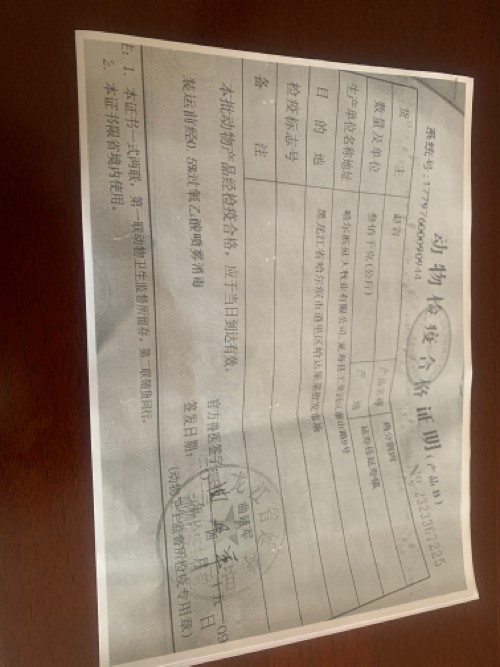 动物检疫合格证明(产品B)
系统号:17797600090944
№ 2323367225
货主 赵岩
产品名称
数量及单位 叁佰千克(公斤)
产地 延寿县延寿镇
生产单位名称地址
目的地 黑龙江省哈尔滨市道里区哈达果菜批发市场
检疫标志号
备注
本批动物产品经检疫合格,应于当日到达有效。
装运前经0.5%过氧乙酸喷雾消毒
官方兽医签字:
签发日期:
(动物卫生监督所检疫专用章)
注:1.本证书一式两联,第一联动物卫生监督所留存,第二联随货同行。
2.本证书限省境内使用。